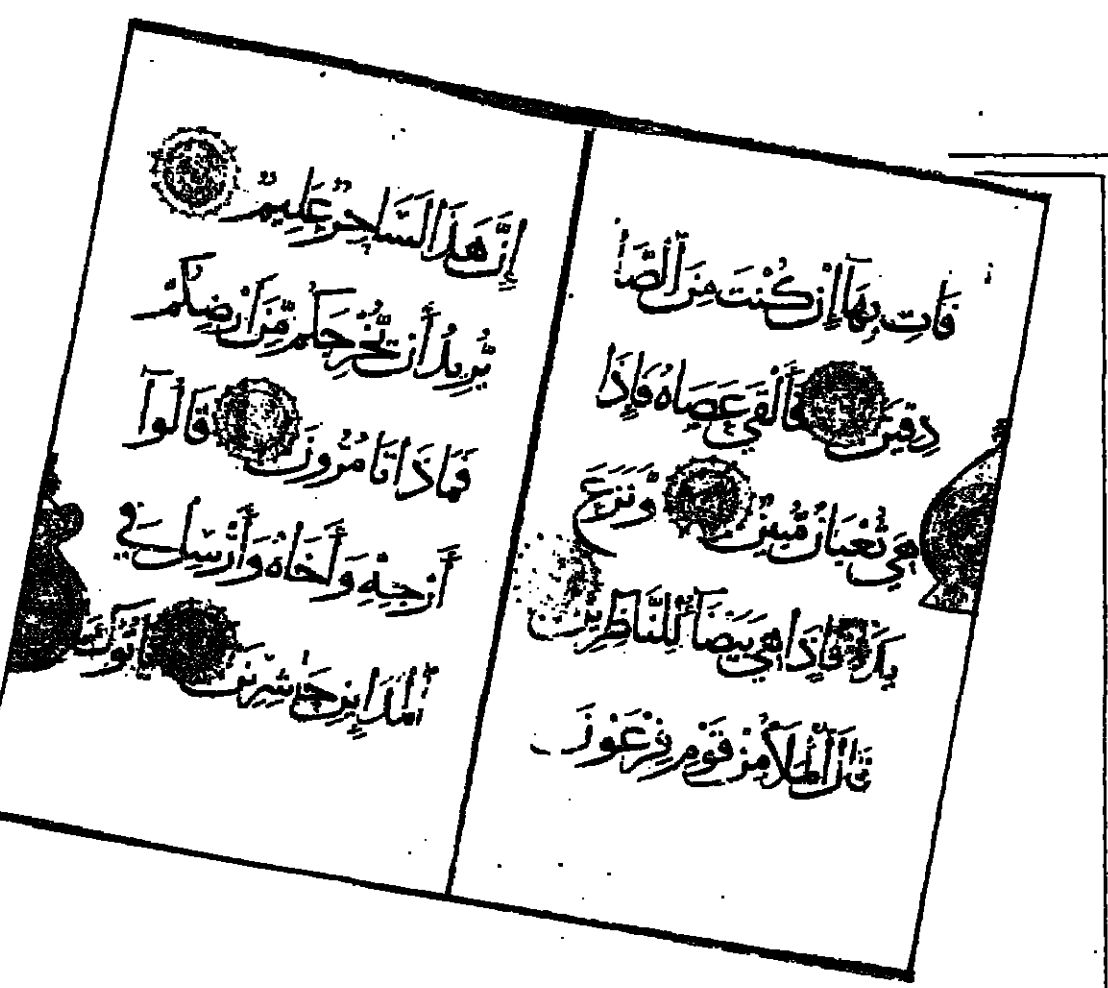 فَأْتِ بِهَآ إِنْ كُنْتَ مِنَ الصَّا
دِقِينَ فَأَلْقَىٰ عَصَاهُ فَإِذَا
هِيَ ثُعْبَانٌ مُّبِينٌ وَنَزَعَ
يَدَهُ فَإِذَا هِيَ بَيْضَآءُ لِلنَّاظِرِينَ
قَالَ الْمَلَأُ مِنْ قَوْمِ فِرْعَوْنَ
إِنَّ هَذَا لَسَاحِرٌ عَلِيمٌ
يُرِيدُ أَنْ يُخْرِجَكُمْ مِّنْ أَرْضِكُمْ
فَمَاذَا تَأْمُرُونَ قَالُوآ
أَرْجِهْ وَأَخَاهُ وَأَرْسِلْ فِي
الْمَدَآئِنِ حَاشِرِينَ يَأْتُوكَ